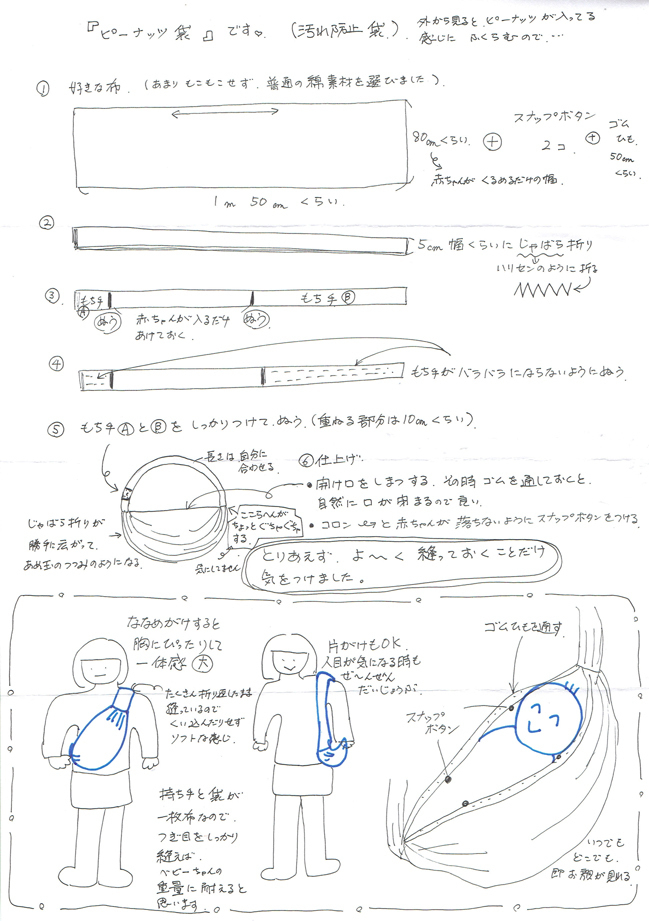 『ピーナッツ袋』です♡ (汚れ防止袋)
外から見ると、ピーナッツが入ってる
感じに ふくらむので…
① 好きな布. (あまりもこもこせず、普通の綿素材を選びました).
80cmくらい.
赤ちゃんが くるめるだけの幅.
1m 50cm くらい.
+
スナップボタン
2コ.
+
ゴム
ひも.
50cm
くらい.
②
5cm幅くらいに じゃばら折り
ハリセンのように折る
③
もち手
Ⓐ
ぬう
赤ちゃんが入るだけ
あけておく.
ぬう
もち手Ⓑ
④
もち手がバラバラにならないようにぬう.
⑤ もち手ⒶとⒷを しっかりつけて、ぬう. (重ねる部分は10cmくらい).
長さは自分に
合わせる.
じゃばら折りが
勝手に広がって、
あめ玉のつつみのようになる.
ここらへんが
ちょっとぐちゃぐちゃ
する.
気にしません
⑥ 仕上げ.
• 開け口を しまつする. その時 ゴムを通しておくと、
自然に口が閉まるので良い.
• コロンと赤ちゃんが 落ちないように スナップボタンをつける.
とりあえず、よ〜く 縫っておくことだけ
気をつけました。
ななめがけすると
胸にぴったりして
一体感 大
たくさん折り返したまま
縫っているので
くい込んだりせず
ソフトな感じ.
片がけもOK.
人目が気になる時も
ぜ〜んぜん
だいじょうぶ.
持ち手と袋が
一枚布なので、
つぎ目をしっかり
縫えば、
ベビーちゃんの
重量に耐えると
思います.
ゴムひもを通す.
スナップ
ボタン
いつでも
どこでも.
即お顔が見れる